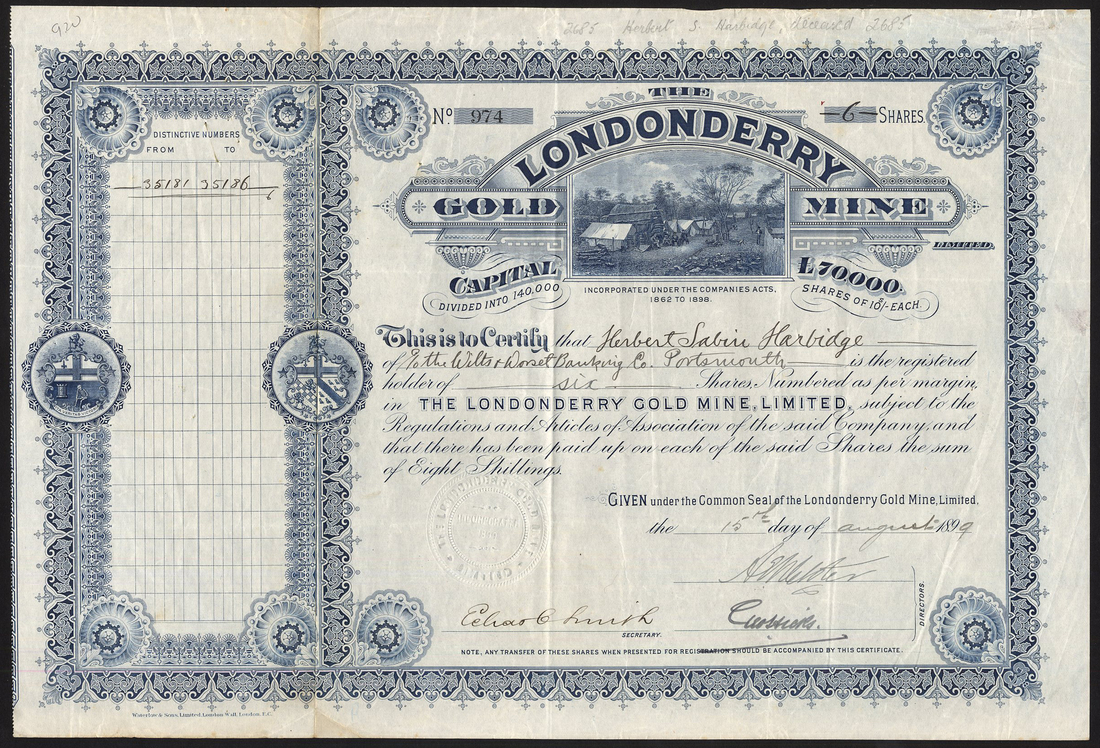 920
2685 Herbert S Harbidge, deceased 2685
DISTINCTIVE NUMBERS
FROM TO
35181 35186
6
No 974
6 SHARES.
THE
LONDONDERRY
GOLD MINE
LIMITED.
CAPITAL £70000.
DIVIDED INTO 140,000 SHARES OF 10/- EACH.
INCORPORATED UNDER THE COMPANIES ACTS,
1862 TO 1898.
This is to Certify that Herbert Sabin Harbidge
of c/o the Wilts & Dorset Banking Co. Portsmouth is the registered
holder of six Shares. Numbered as per margin,
in THE LONDONDERRY GOLD MINE, LIMITED, subject to the
Regulations and Articles of Association of the said Company, and
that there has been paid up on each of the said Shares the sum
of Eight Shillings.
GIVEN under the Common Seal of the Londonderry Gold Mine, Limited,
the 15th day of august 1899
Smith
SECRETARY.
DIRECTORS.
NOTE, ANY TRANSFER OF THESE SHARES WHEN PRESENTED FOR REGISTRATION SHOULD BE ACCOMPANIED BY THIS CERTIFICATE.
Waterlow & Sons, Limited, London Wall, London, E.C.